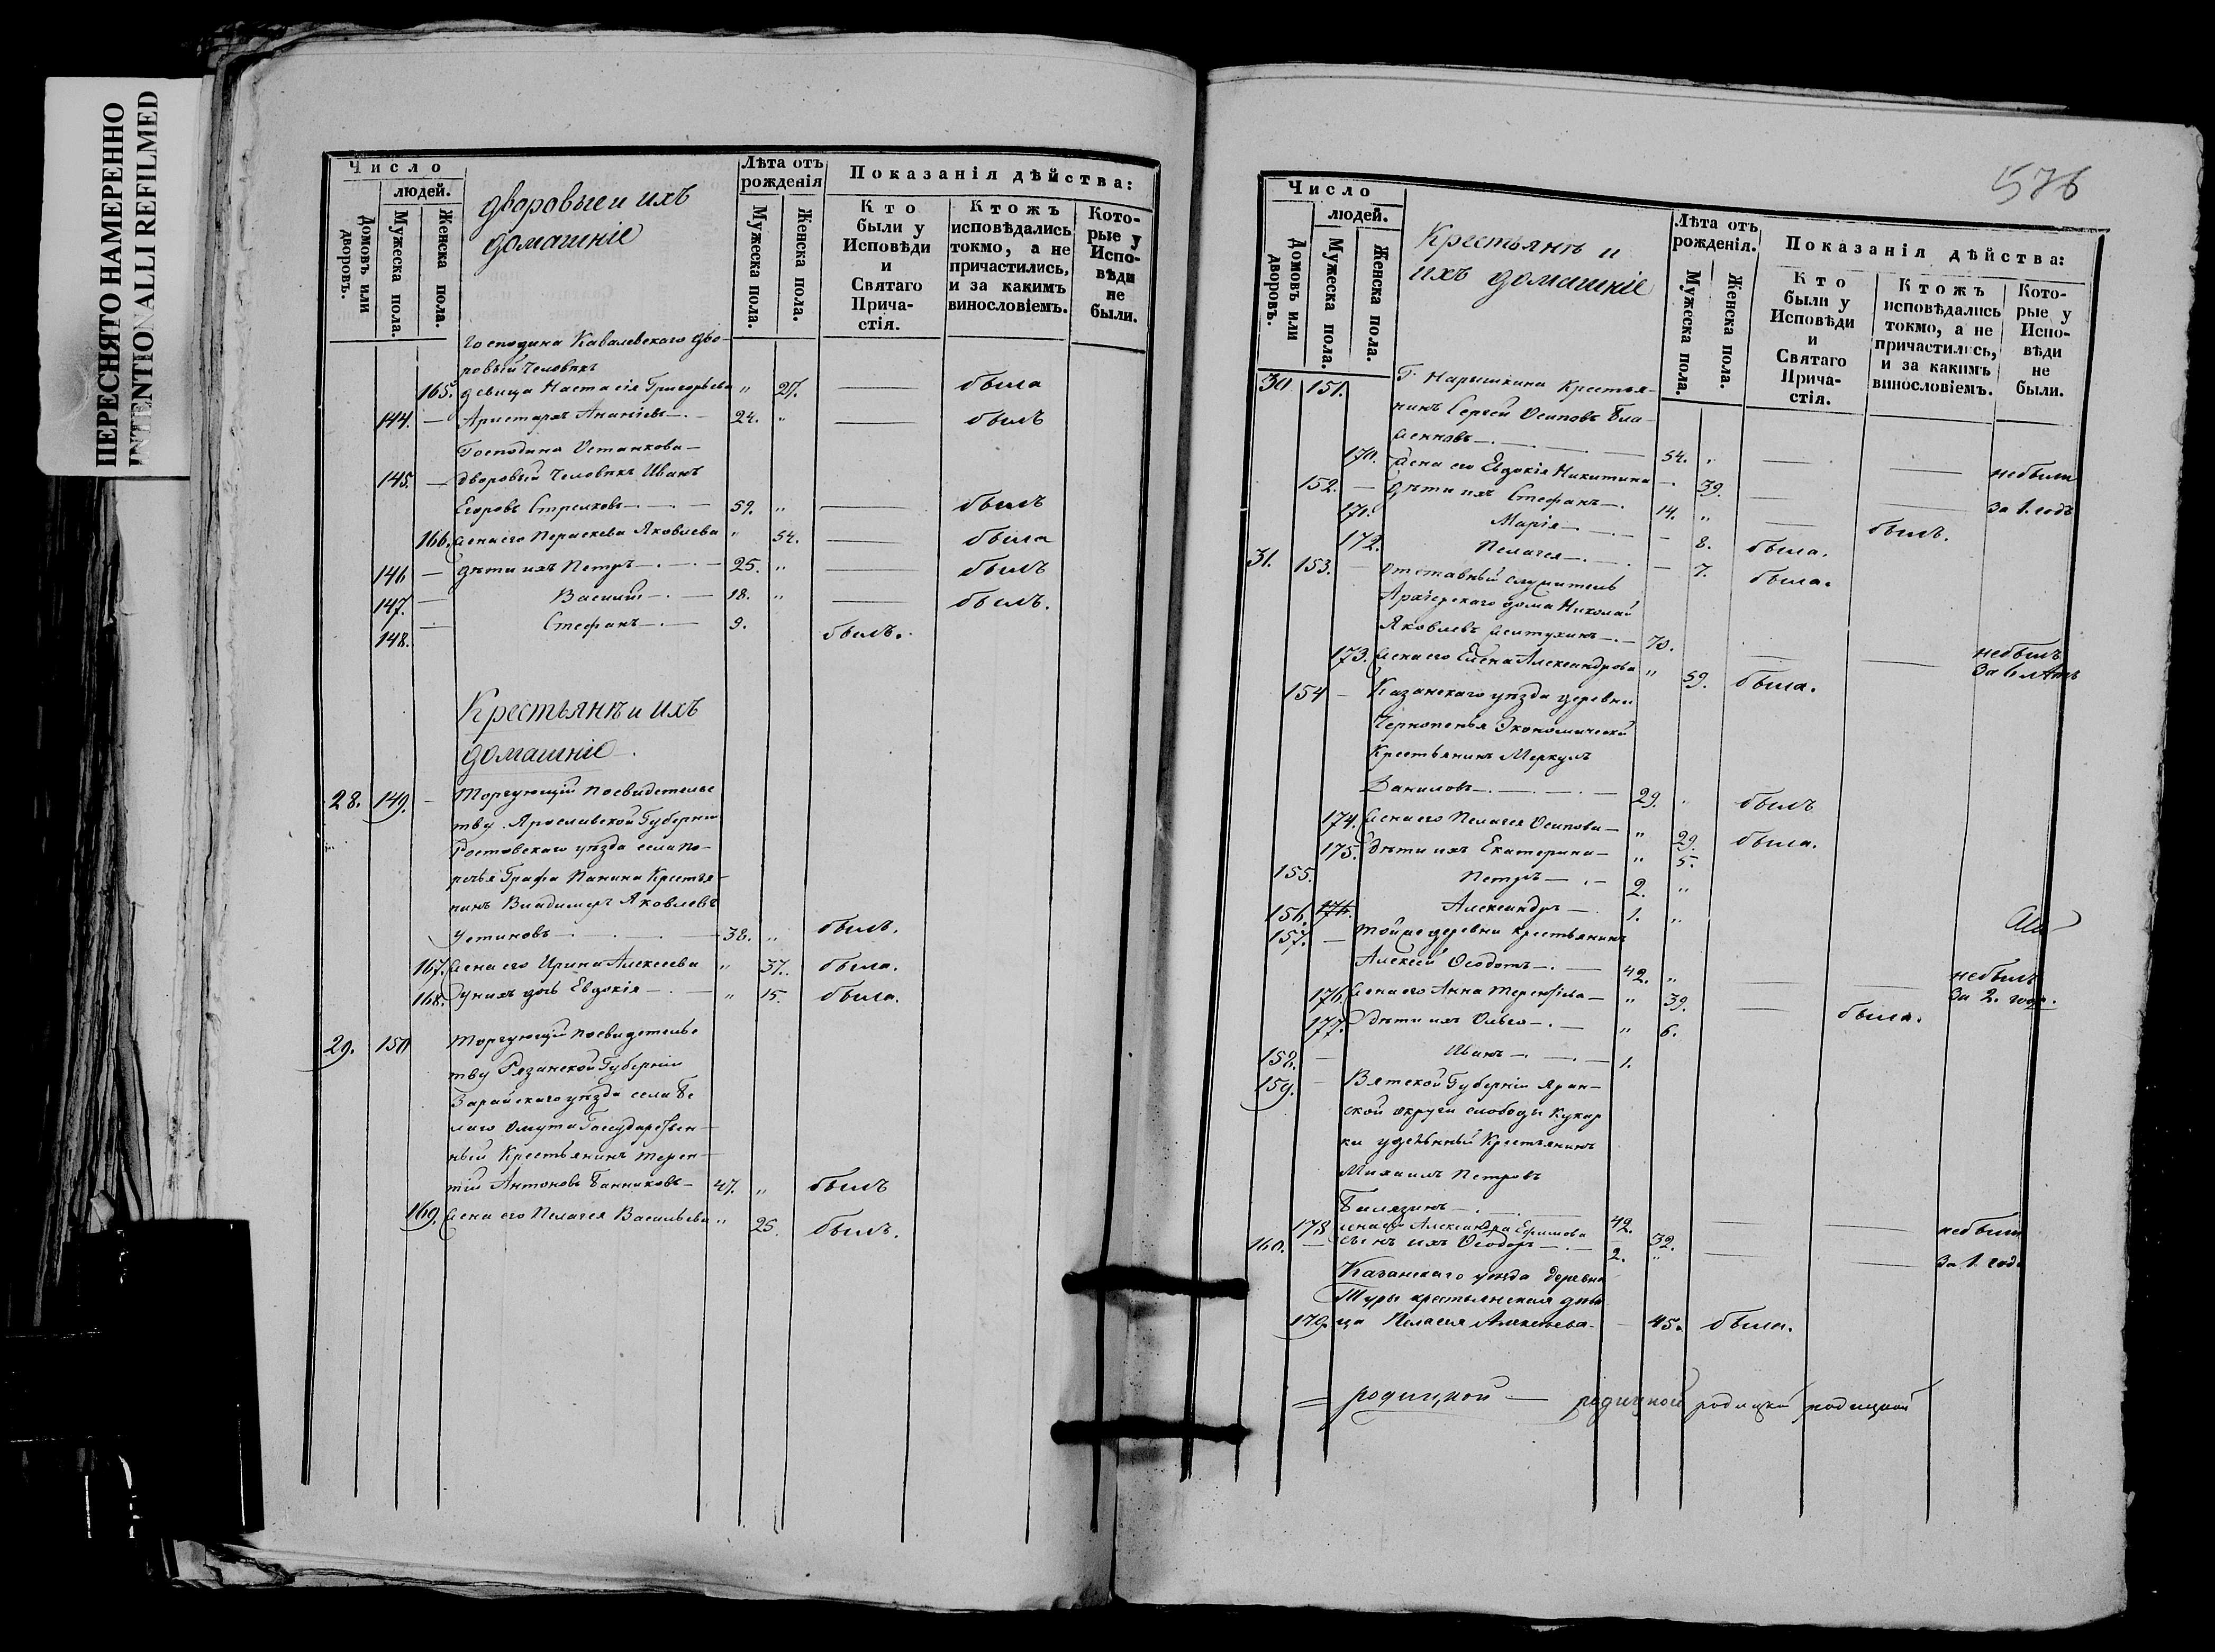 ПЕРЕСНЯТО НАМЕРЕННО
INTENTIONALLI REFILMED
Число
людей.
Домовъ или дворовъ.
Мужеска пола.
Женска пола.
дворовые и ихъ
домашніе
Лѣта отъ рожденія
Мужеска пола.
Женска пола.
Показанія дѣйства:
Кто были у Исповѣди и Святаго Причастія.
Ктожъ исповѣдались токмо, а не причастились, и за какимъ винословіемъ.
Которые у Исповѣди не были.
Господина Кавалевскаго дво-
ровый человѣкъ
165. девица Настасія Григорьева " 27. — была
144. — Аристархъ Ананіевъ — 24. " — былъ
Господина Останкова —
145. — дворовый человѣкъ Иванъ
Егоровъ Стрелковъ — 59. " — былъ
166. жена его Параскева Яковлева " 54. — была
146 — дѣти ихъ Петръ — 25. " — былъ
147. — Василій — 18. " — былъ.
148. — Стефанъ — 9. былъ.
Крестьянѣ и ихъ
домашніе.
28. 149. — Торгующій по свидетельс
тву Ярославской Губерніи
Ростовскаго уѣзда села По-
речья Графа Панина Крестья-
нинъ Владимиръ Яковлевъ
Устиновъ — 38. " былъ.
167. жена его Ирина Алексеева " 37. была.
168. у нихъ дочь Евдокія — " 15. была.
29. 150 Торгующій по свидетельс
тву Рязанской Губерніи
Зарайскаго уѣзда села Бе
лаго Омута Государствен-
ный Крестьянинъ Терен-
тій Антоновъ Банниковъ — 47. " былъ
169. жена его Пелагея Васильева " 25. былъ.
576
Число
людей.
Домовъ или дворовъ.
Мужеска пола.
Женска пола.
Крестьянѣ и
ихъ домашніе
Лѣта отъ рожденія.
Мужеска пола
Женска пола.
Показанія дѣйства:
Кто были у Исповѣди и Святаго Причастія.
Ктожъ исповѣдались токмо, а не причастились, и за какимъ винословіемъ.
Которые у Исповѣди не были.
30 151. Г. Нарышкина Крестья-
нинъ Сергей Осиповъ Бла-
женновъ — 54. " — —
170. жена его Евдокія Никитина — 39. — — небыли
152. — дѣти ихъ Стефанъ — 14. " — былъ. за 1. годъ
171. Марія — 8. была.
172. Пелагея — 7. была.
31. 153. — Отставный служитель
Архіерскаго дома Николай
Яковлевъ — 70. — — небылъ
173. жена его Елена Александрова " 59. была.
154 — Казанскаго уѣзда деревни
Чернопенья Экономическій
Крестьянинъ Меркулъ
Даниловъ — 29. " былъ
174. жена его Пелагея Осипова — " 29. была.
175. дѣти ихъ Екатерина — " 5.
155. Петръ — 2. "
156. 176. Александръ — 1. "
157. — Тойже деревни крестьянинъ
Алексей Ѳедотъ — 42. " — небылъ
176. жена его Анна Терентіева — " 39. — была. за 2. года.
177. дѣти ихъ Ольга — " 6.
158. — Иванъ — 1.
159. — Вятской Губерніи Яран-
ской округи слободы Кукар
ки удѣльный Крестьянинъ
Михаилъ Петровъ
— 42. — — небыли
178 жена его Александра Ефимова 32.
160. — сынъ ихъ Ѳеодоръ — 2. " — — за 1. годъ
Казанскаго уѣзда деревни
Туры крестьянская дѣви
179. ца Пелагея Алексеева — 45. была.